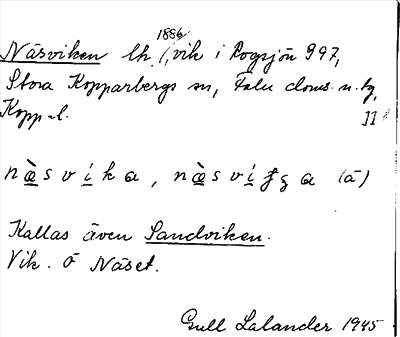 1886
Näsviken lh. (, vik i Rogsjön 997,
Stora Kopparbergs sn, Falu doms. n. tg,
Kopp-l. II
næ̀svíka, næ̀svíga (a)
Kallas även Sandviken.
Vik. Ö Näset.
Gull Lalander 1945